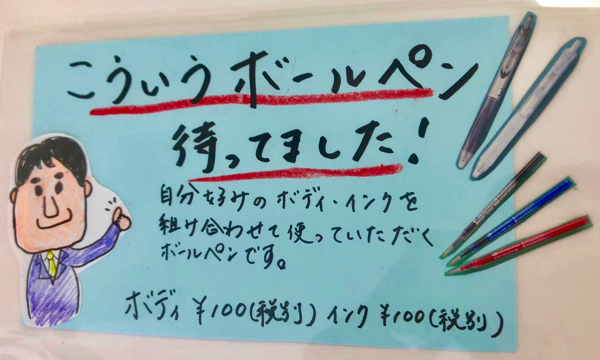 こういうボールペン
待ってました!
自分好みのボディ・インクを
組み合わせて使っていただく
ボールペンです。
ボディ ¥100(税別) インク ¥100(税別)